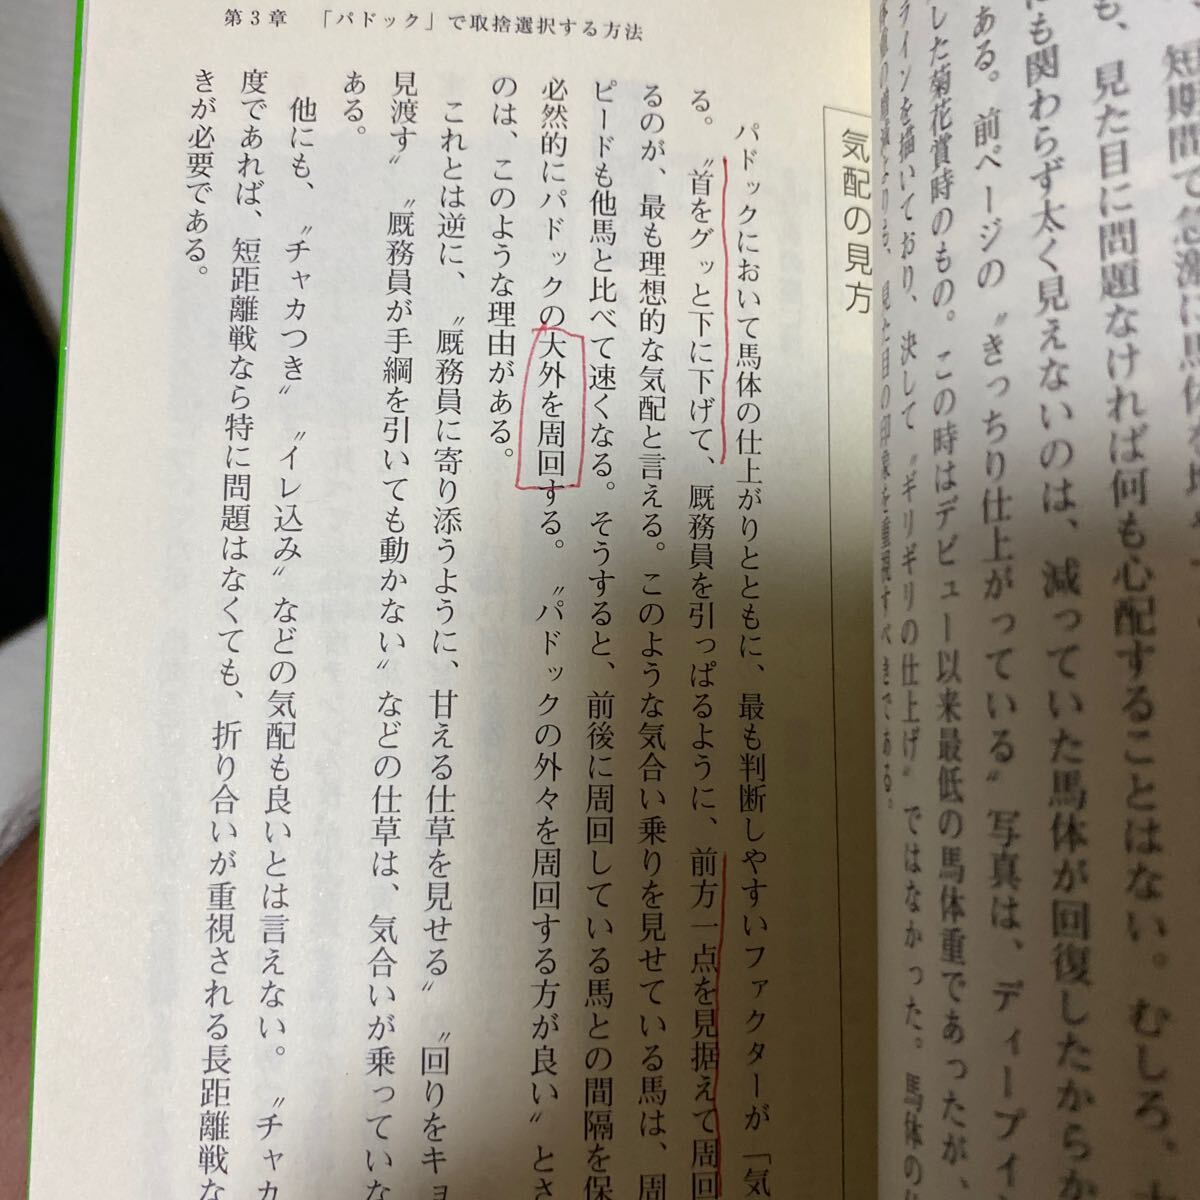 短期間で急激に馬体を
も、見た目に問題なければ何も心配することはない。むしろ、
にも関わらず太く見えないのは、減っていた馬体が回復したからか
ある。前ページの〝きっちり仕上がっている〟写真は、ディープイ
した菊花賞時のもの。この時はデビュー以来最低の馬体重であったが、
ラインを描いており、決して〝ギリギリの仕上げ〟ではなかった。馬体の
見た目の印象を重視すべきである。
気配の見方
パドックにおいて馬体の仕上がりとともに、最も判断しやすいファクターが「気
る。〝首をグッと下に下げて、厩務員を引っぱるように、前方一点を見据えて周回
るのが、最も理想的な気配と言える。このような気合い乗りを見せている馬は、周
ピードも他馬と比べて速くなる。そうすると、前後に周回している馬との間隔を保
必然的にパドックの大外を周回する。〝パドックの外々を周回する方が良い〟とさ
のは、このような理由がある。
これとは逆に、〝厩務員に寄り添うように、甘える仕草を見せる〟〝回りをキョ
見渡す〟〝厩務員が手綱を引いても動かない〟などの仕草は、気合いが乗っていな
ある。
他にも、〝チャカつき〟〝イレ込み〟などの気配も良いとは言えない。〝チャカ
度であれば、短距離戦なら特に問題はなくても、折り合いが重視される長距離戦な
きが必要である。
第3章 「パドック」で取捨選択する方法